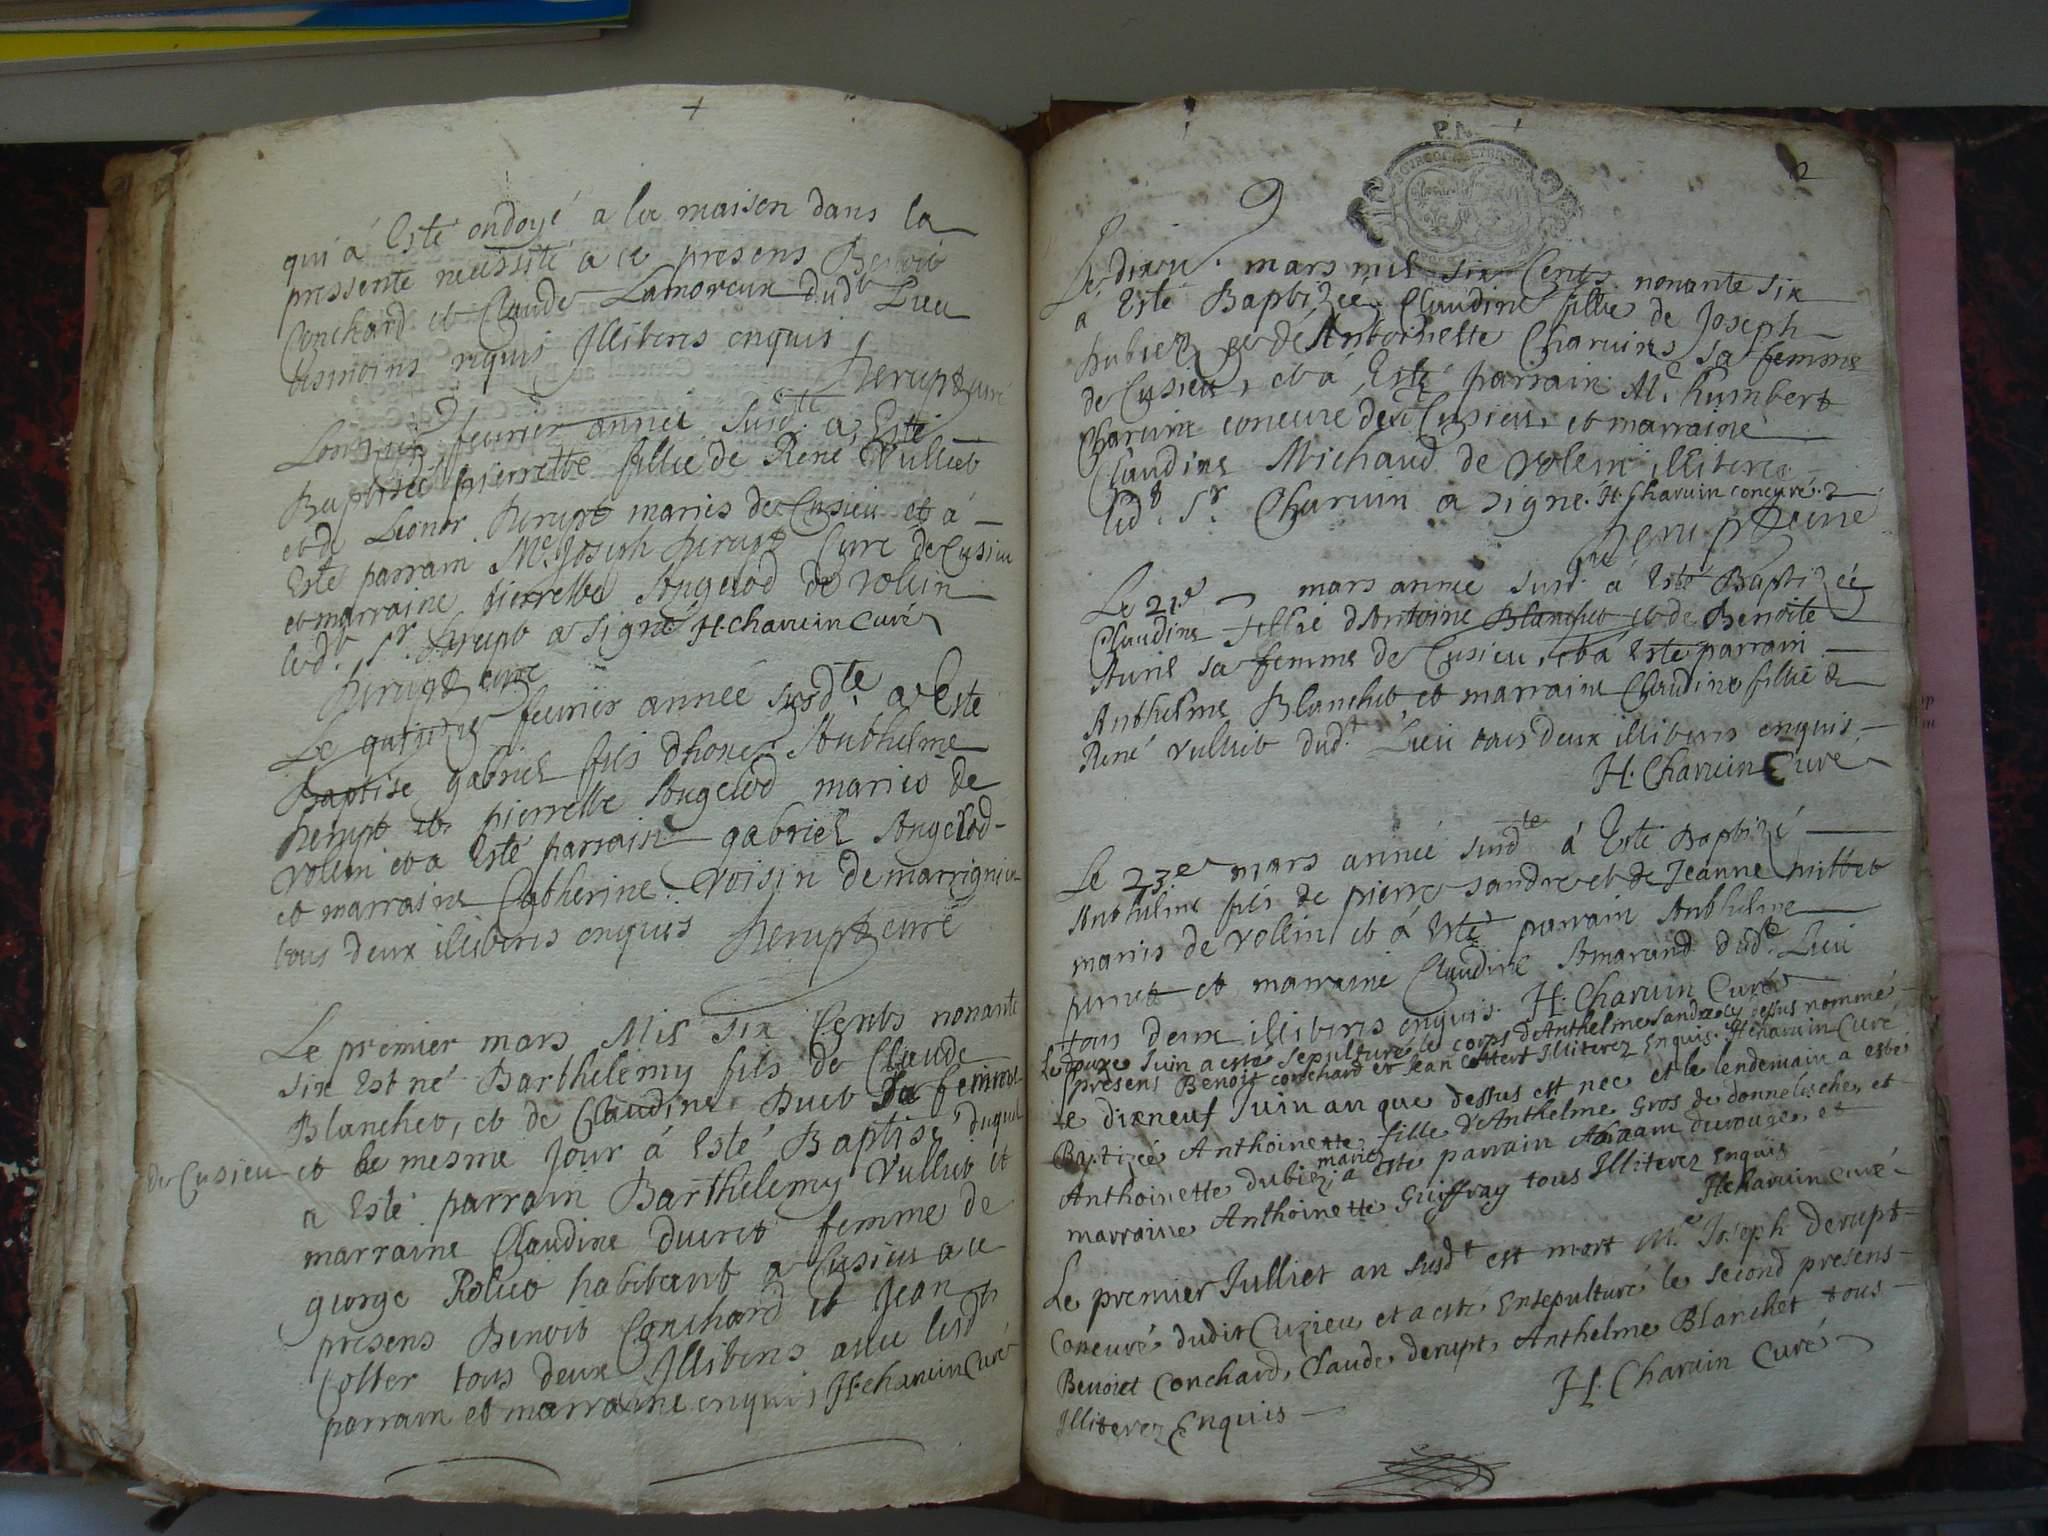 qui á Esté ondoyé a la maison dans la
pressente necessité a ce presens Benoit
Conchard et Claude Lamoreux dudt Lieu
tesmoins requis Illiteres enquis
Derupt curé
L'onzie fevrier année susdtte a Esté
Baptisée pierrette fillie de René Vulliet
et de Leonor Derupt mariés de Cusieu et á
Esté parrain Me Joseph Derupt Curé de Cusieu
et marraine pierrette Angelod de rollin
led.t Sr. Derupt a signé H. charuin Curé
Derupt curé
Le quinzie fevrier année susdte a Esté
Baptise gabriel fils dhone. Anthelme
Derupt et pierrette Angelod mariés de
rollin et a Esté parrain gabriel Angelod
et marraine Catherine Voisin de marrignieu
tous deux illiteres enquis Derupt curé
Le premier mars Mil six Cents nonante
six Est né Barthelemy fils de Claude
Blanchet, et de Claudine Buet sa femme
de Cusieu et le mesme Jour á Esté Baptisé duquel
a Esté parrain Barthelemy Vulliet et
marraine Claudine Ducret femme de
george Rollet habitant a Cusieu a ce
presens Benoit Conchard et Jean
Cotter tous deux Illiteres avec lesdts
parrain et marraine enquis H. charuin Curé
P. N.
9
2
Le dixe. mars mil six Cents nonante six
a Esté Baptizée Claudine fillie de Joseph
Dubiez et de Antoinette Charuins sa femme
de Cusieu, et á Esté parrain Me. humbert
Charuin concure dud Cusieu, et marraine
Claudine Michaud de rolein illitere
led.t Sr. Charuin a signé. H. Charuin concuré.
Derupt Curé
Le 21.e mars année susd.tte á Esté Baptizée
Claudine fillie d'Antoine Blanchet et de Benoite
Auril sa femme de Cusieu, et a Esté parrain
Anthelme Blanchet, et marraine Claudine fillie de
René vulliet dud.t Lieu tous deux illiteres enquis,
H. Charuin Curé
Le 23.e mars année susd.te á Esté Baptizé
Anthelme fils de pierre sandre et de Jeanne mittet
mariés de rollin, et á Esté parrain Anthelme
perret et marraine Claudine Amarand dud.t Lieu
tous deux illiteres enquis. H. Charuin Curé
Le douze Juin a esté sepulturé le corps d'Anthelme Sandre cy dessus nommé
presens Benoit conchard et Jean Cottert Illiterez Enquis. H. charuin Curé
Le dixneuf Juin an que dessus est née et le lendemain a esté
Batizée Anthoinette fille d'Anthelme Gros de donnelische, et
Anthoinette dubiez mariez a esté parrain Abraam durouge, et
marraine Anthoinette Guiffray tous Illiterez Enquis
H. charuin curé
Le premier Julliet an susd.t est mort Me. Joseph derupt
Concuré dudit Cuzieu et a esté Ensepulturé le second presens
Benoiet Conchard, Claude derupt, Anthelme Blanchet tous
Illiterez Enquis
H. Charuin Curé